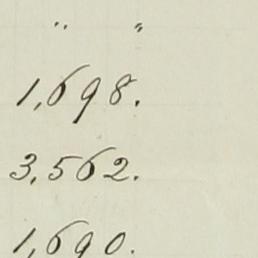 " "
1,698.
3,562.
1,690.